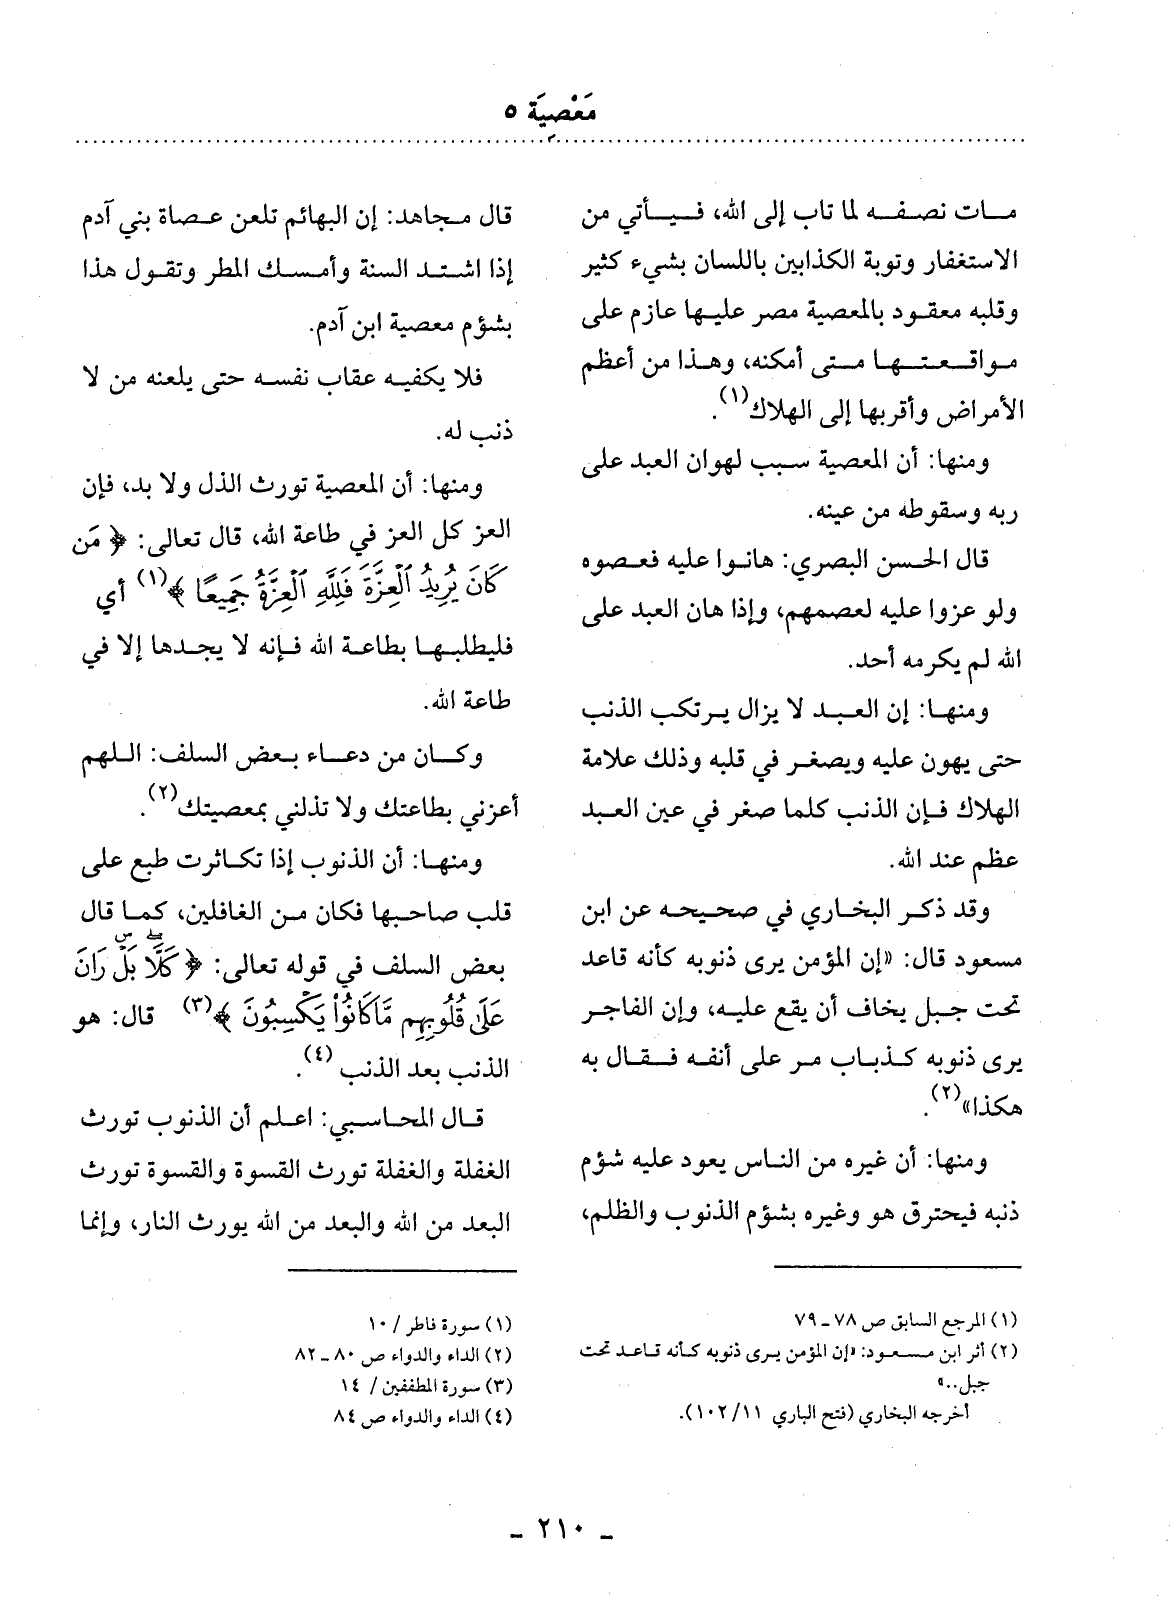 مَعْصِيَة ٥
مات نصفه لما تاب إلى الله، فيأتي من
الاستغفار وتوبة الكذابين باللسان بشيء كثير
وقلبه معقود بالمعصية مصر عليها عازم على
مواقعتها متى أمكنه، وهذا من أعظم
الأمراض وأقربها إلى الهلاك(١).
ومنها: أن المعصية سبب لهوان العبد على
ربه وسقوطه من عينه.
قال الحسن البصري: هانوا عليه فعصوه
ولو عزوا عليه لعصمهم، وإذا هان العبد على
الله لم يكرمه أحد.
ومنها: إن العبد لا يزال يرتكب الذنب
حتى يهون عليه ويصغر في قلبه وذلك علامة
الهلاك فإن الذنب كلما صغر في عين العبد
عظم عند الله.
وقد ذكر البخاري في صحيحه عن ابن
مسعود قال: «إن المؤمن يرى ذنوبه كأنه قاعد
تحت جبل يخاف أن يقع عليه، وإن الفاجر
يرى ذنوبه كذباب مر على أنفه فقال به
هكذا»(٢).
ومنها: أن غيره من الناس يعود عليه شؤم
ذنبه فيحترق هو وغيره بشؤم الذنوب والظلم،
(١) المرجع السابق ص ٧٨ ـ ٧٩
(٢) أثر ابن مسعود: «إن المؤمن يرى ذنوبه كأنه قاعد تحت
جبل..»
أخرجه البخاري (فتح الباري ١١/ ١٠٢).
قال مجاهد: إن البهائم تلعن عصاة بني آدم
إذا اشتد السنة وأمسك المطر وتقول هذا
بشؤم معصية ابن آدم.
فلا يكفيه عقاب نفسه حتى يلعنه من لا
ذنب له.
ومنها: أن المعصية تورث الذل ولا بد، فإن
العز كل العز في طاعة الله، قال تعالى: ﴿ مَن
كَانَ يُرِيدُ ٱلْعِزَّةَ فَلِلَّهِ ٱلْعِزَّةُ جَمِيعًا ﴾(١) أي
فليطلبها بطاعة الله فإنه لا يجدها إلا في
طاعة الله.
وكان من دعاء بعض السلف: اللهم
أعزني بطاعتك ولا تذلني بمعصيتك(٢).
ومنها: أن الذنوب إذا تكاثرت طبع على
قلب صاحبها فكان من الغافلين، كما قال
بعض السلف في قوله تعالى: ﴿ كَلَّا ۖ بَلْ ۜ رَانَ
عَلَىٰ قُلُوبِهِم مَّا كَانُوا۟ يَكْسِبُونَ ﴾(٣) قال: هو
الذنب بعد الذنب (٤).
قال المحاسبي: اعلم أن الذنوب تورث
الغفلة والغفلة تورث القسوة والقسوة تورث
البعد من الله والبعد من الله يورث النار، وإنما
(١) سورة فاطر / ١٠
(٢) الداء والدواء ص ٨٠ ـ ٨٢
(٣) سورة المطففين / ١٤
(٤) الداء والدواء ص ٨٤
ـ ٢١٠ ـ